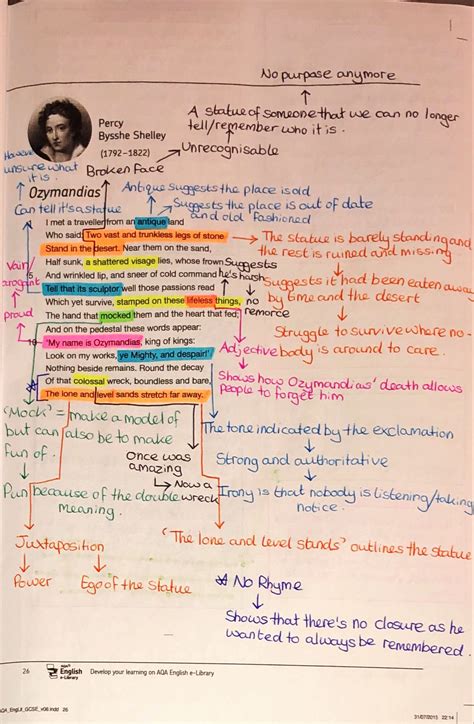 No purpose anymore
A statue of someone that we can no longer
tell/remember who it is.
Unrecognisable
Percy
Bysshe Shelley
(1792–1822)
However
unsure what
it is.
Broken Face
Ozymandias
Antique suggests the place is old
Suggests the place is out of date
and old fashioned
Can tell it's a statue
I met a traveller from an antique land
Who said: Two vast and trunkless legs of stone
Stand in the desert. Near them on the sand,
Half sunk, a shattered visage lies, whose frown
And wrinkled lip, and sneer of cold command
Tell that its sculptor well those passions read
Which yet survive, stamped on these lifeless things,
The hand that mocked them and the heart that fed;
And on the pedestal these words appear:
'My name is Ozymandias, king of kings:
Look on my works, ye Mighty, and despair!'
Nothing beside remains. Round the decay
Of that colossal wreck, boundless and bare,
The lone and level sands stretch far away.
5
10
Vain/
arrogant
proud
Suggests
he's harsh
no
remorce
The statue is barely standing and
the rest is ruined and missing
Suggests it had been eaten away
by time and the desert
Struggle to survive where no-
body is around to care.
Adjective
Shows how Ozymandias' death allows
people to forget him
'Mock' = make a model of
but can also be to make
fun of.
Pun because of the double
meaning.
Once was
amazing
Now a
wreck
The tone indicated by the exclamation
Strong and authoritative
Irony is that nobody is listening/taking
notice.
Juxtaposition
Power
Ego of the Statue
'The lone and level stands' outlines the statue
* No Rhyme
Shows that there's no closure as he
wanted to always be remembered.
26
AQA
English
e-Library
Develop your learning on AQA English e-Library
AQA_EngLit_GCSE_v06.indd 26
31/07/2013 22:14